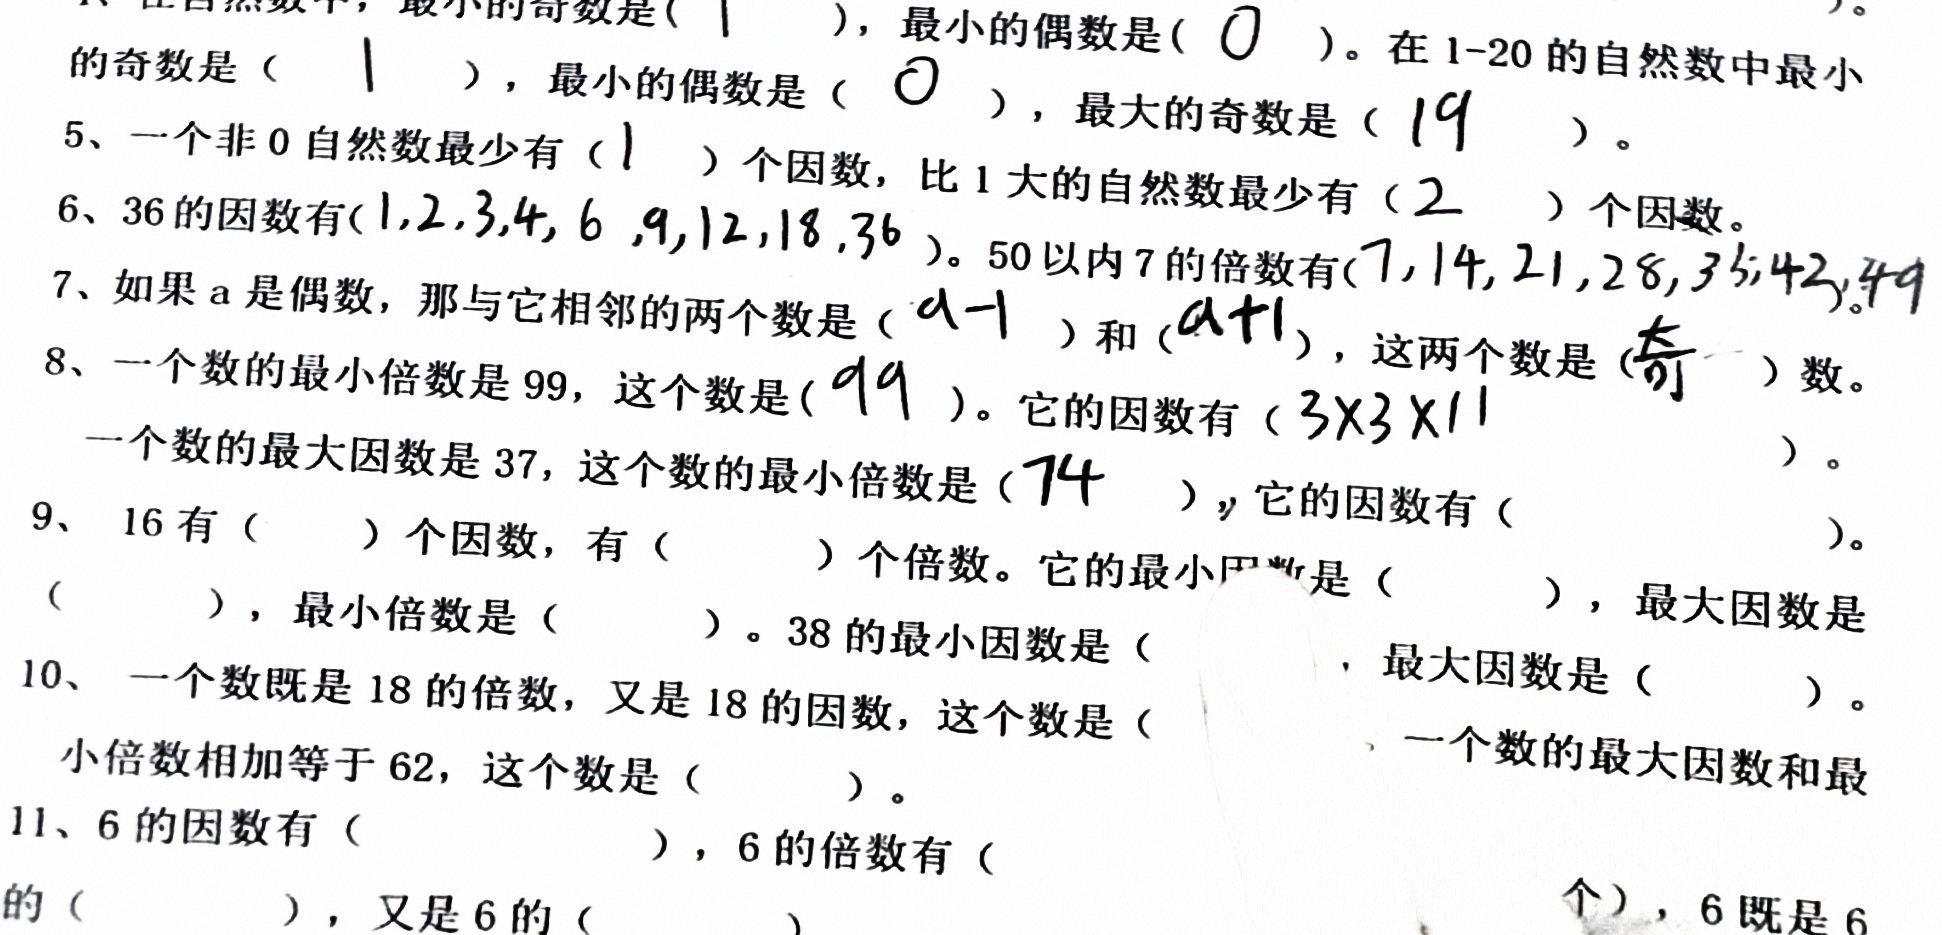 4、在自然数中，最小的奇数是( 1 )，最小的偶数是( 0 )。在 1-20 的自然数中最小
的奇数是（ 1 ），最小的偶数是（ 0 ），最大的奇数是（ 19 ）。
5、一个非 0 自然数最少有（ 1 ）个因数，比 1 大的自然数最少有（ 2 ）个因数。
6、36 的因数有( 1,2,3,4,6,9,12,18,36 )。50 以内 7 的倍数有( 7,14,21,28,35,42,49 )。
7、如果 a 是偶数，那与它相邻的两个数是（ a-1 ）和（ a+1 ），这两个数是（ 奇 ）数。
8、一个数的最小倍数是 99，这个数是( 99 )。它的因数有（ 3×3×11 ）。
一个数的最大因数是 37，这个数的最小倍数是（ 74 ），它的因数有（ )。
9、 16 有（ ）个因数，有（ ）个倍数。它的最小因数是（ ），最大因数是
（ ），最小倍数是（ ）。38 的最小因数是（ ，最大因数是（ ）。
10、 一个数既是 18 的倍数，又是 18 的因数，这个数是（ 、一个数的最大因数和最
小倍数相加等于 62，这个数是（ ）。
11、6 的因数有（ ），6 的倍数有（ 个），6 既是 6
的（ ），又是 6 的（ ）